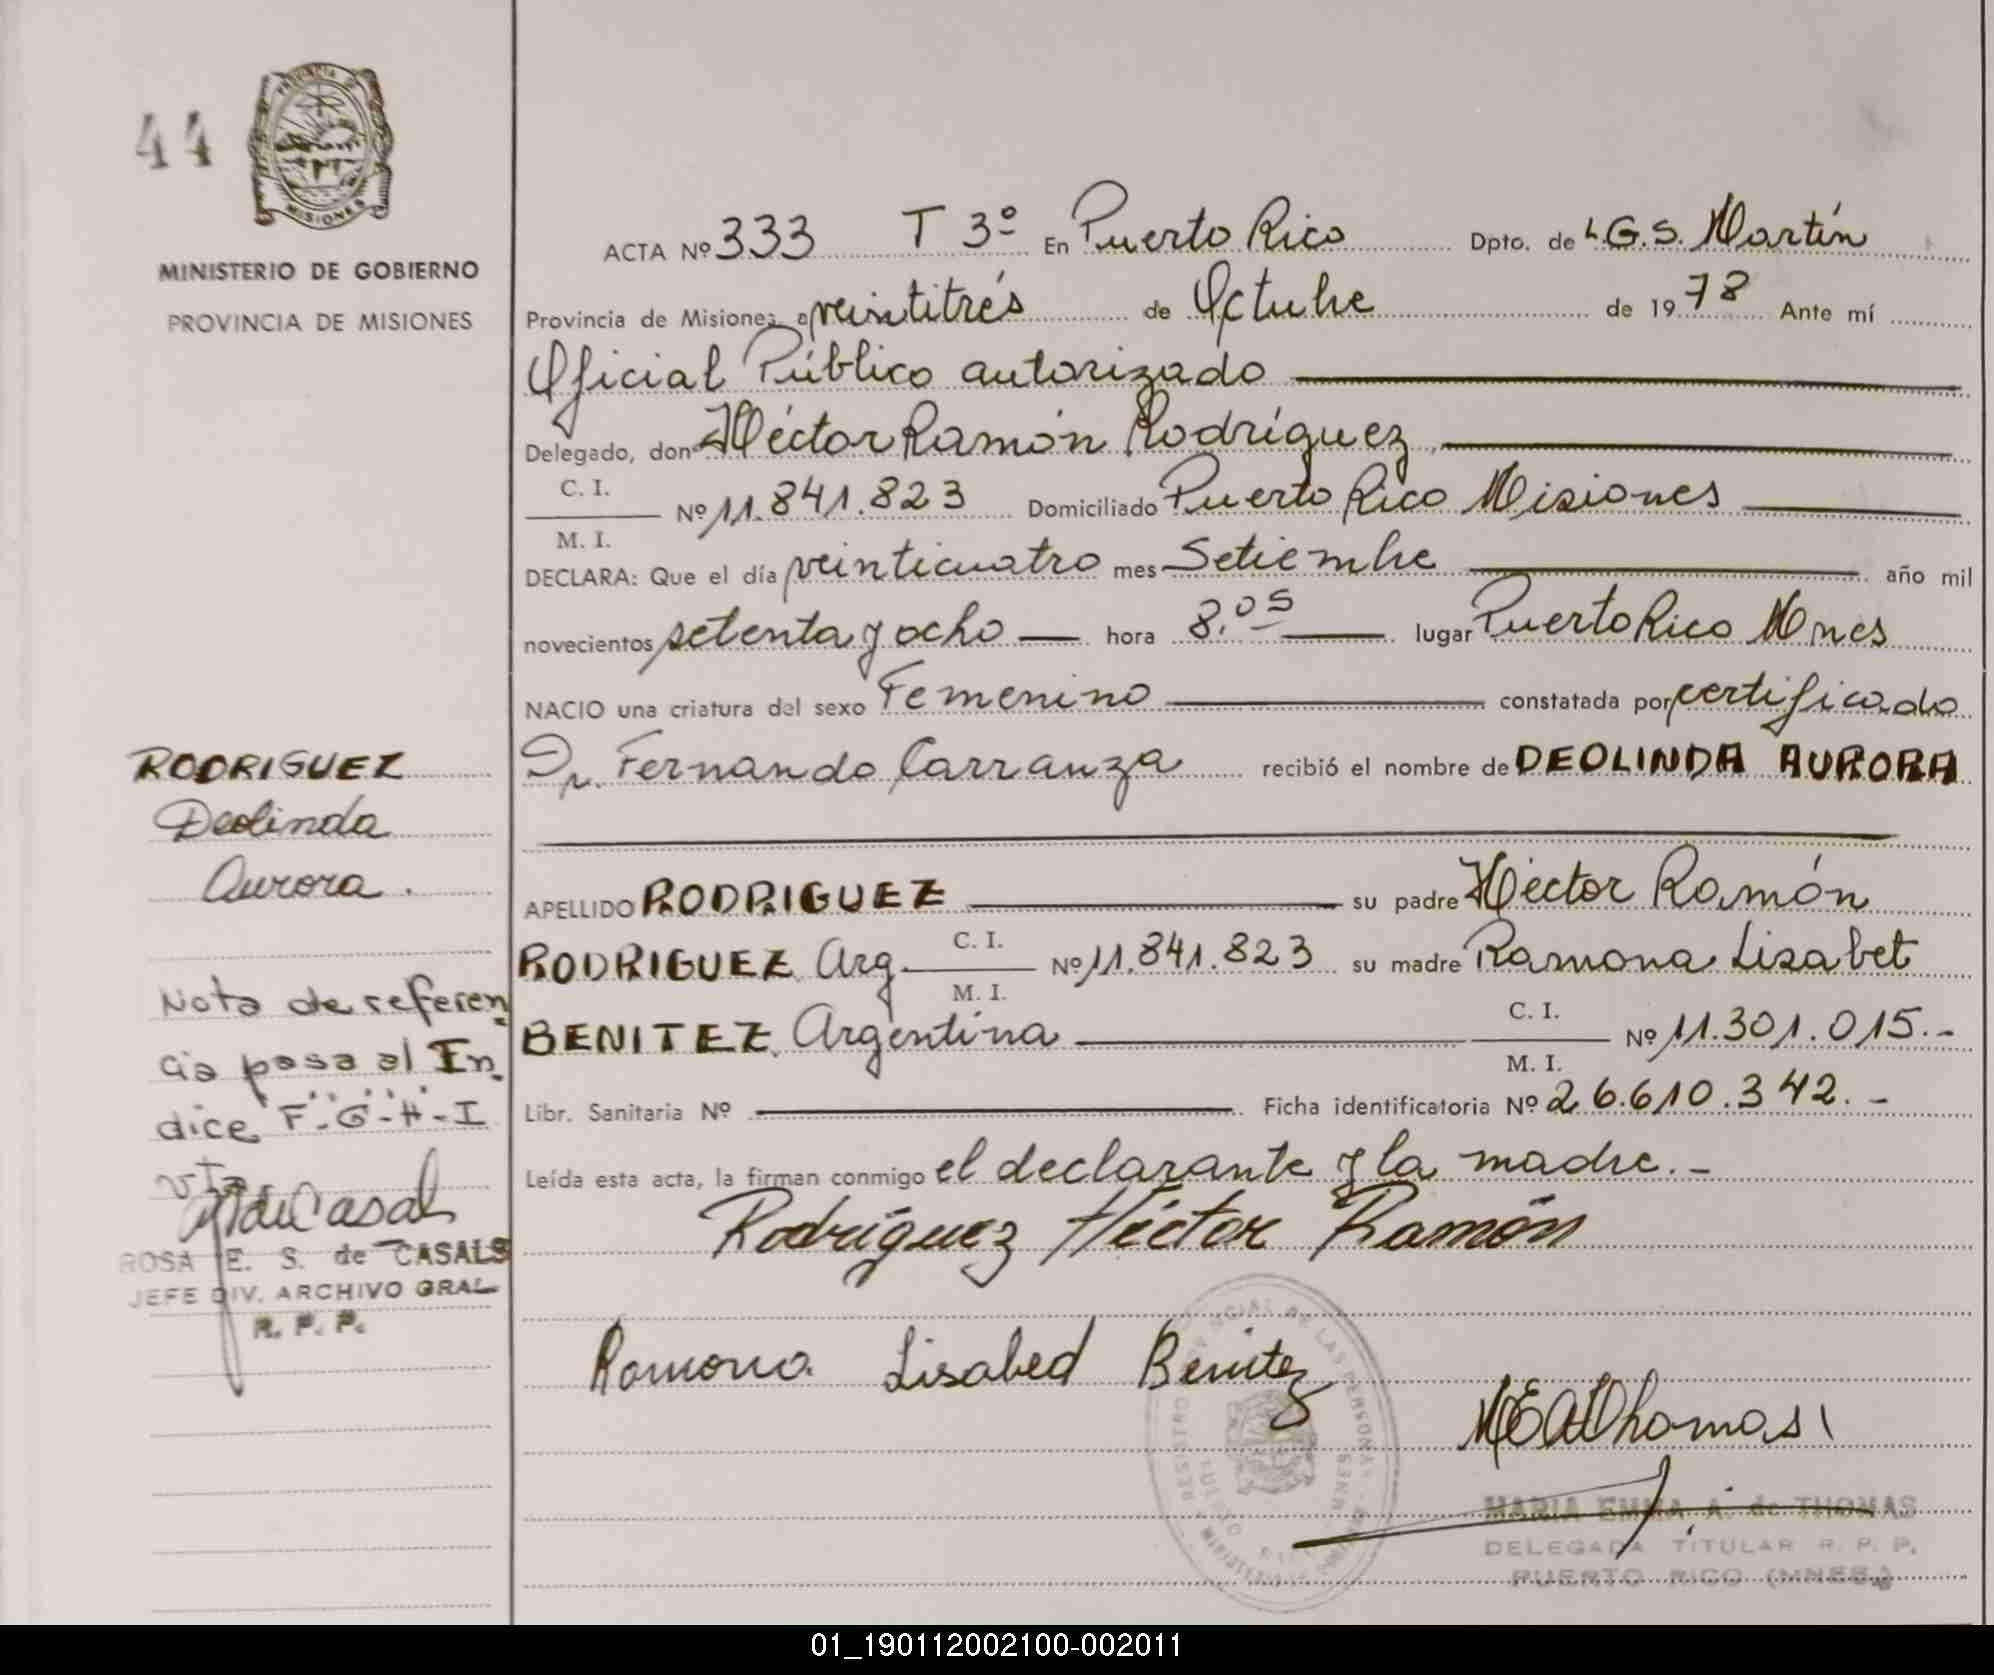 44
MISIONES
MINISTERIO DE GOBIERNO
PROVINCIA DE MISIONES
RODRIGUEZ
Deolinda
Aurora.
Nota de referen
cia pasa al In
dice F-G-H-I
ROSA E. S. de CASALS
JEFE DIV. ARCHIVO GRAL
R. P. P.
ACTA Nº 333 T 3º En Puerto Rico Dpto. de L.G.S. Martín
Provincia de Misiones, a veintitrés de Octubre de 1978 Ante mí
Oficial Público autorizado
Delegado, don Héctor Ramón Rodríguez
C. I.
Nº 11.841.823 Domiciliado Puerto Rico Misiones
M. I.
DECLARA: Que el día veinticuatro mes Setiembre año mil
novecientos setenta y ocho hora 8.05 lugar Puerto Rico Mnes
NACIO una criatura del sexo Femenino constatada por certificado
Dr. Fernando Carranza recibió el nombre de DEOLINDA AURORA
APELLIDO RODRIGUEZ su padre Héctor Ramón
RODRIGUEZ Arg. C. I. M. I. Nº 11.841.823 su madre Ramona Lisabet
BENITEZ Argentina C. I. M. I. Nº 11.301.015.-
Libr. Sanitaria Nº Ficha identificatoria Nº 26.610.342.-
Leída esta acta, la firman conmigo el declarante y la madre.-
Rodríguez Héctor Ramón
Ramona Lisabed Benitez
MEAThomas
MARIA EMMA A. de THOMAS
DELEGADA TITULAR R. P. P.
PUERTO RICO (MNES.)
01_190112002100-002011